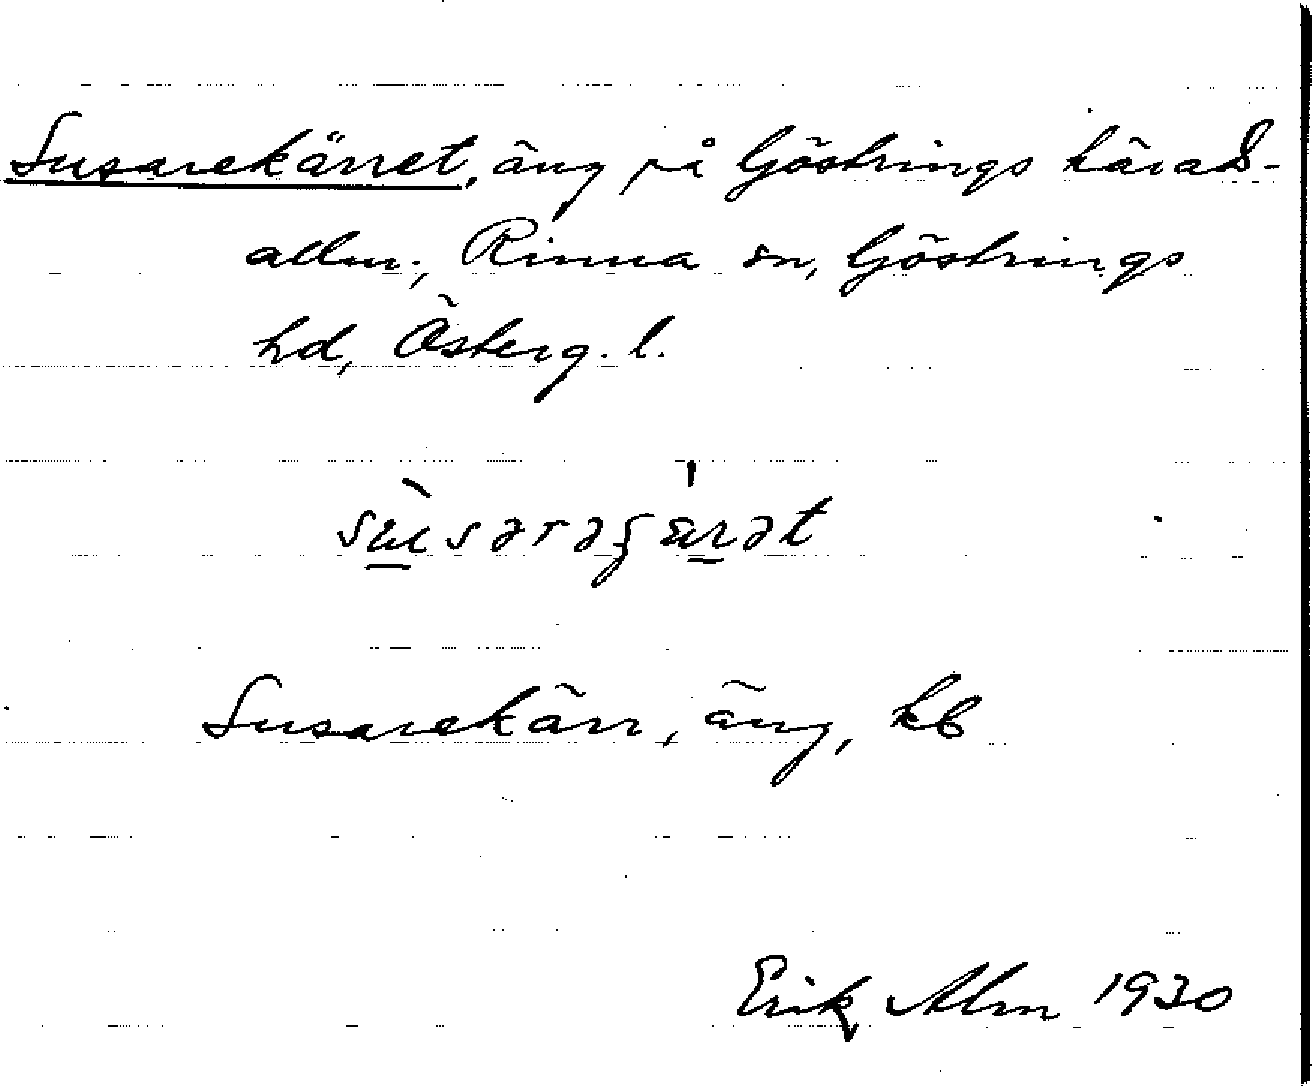 Susarekärret, äng på Göstrings härads-
allm., Rinna sn, Göstrings
hd, Österg. l.
Susarekärr, äng, kb
Erik Alm 1930